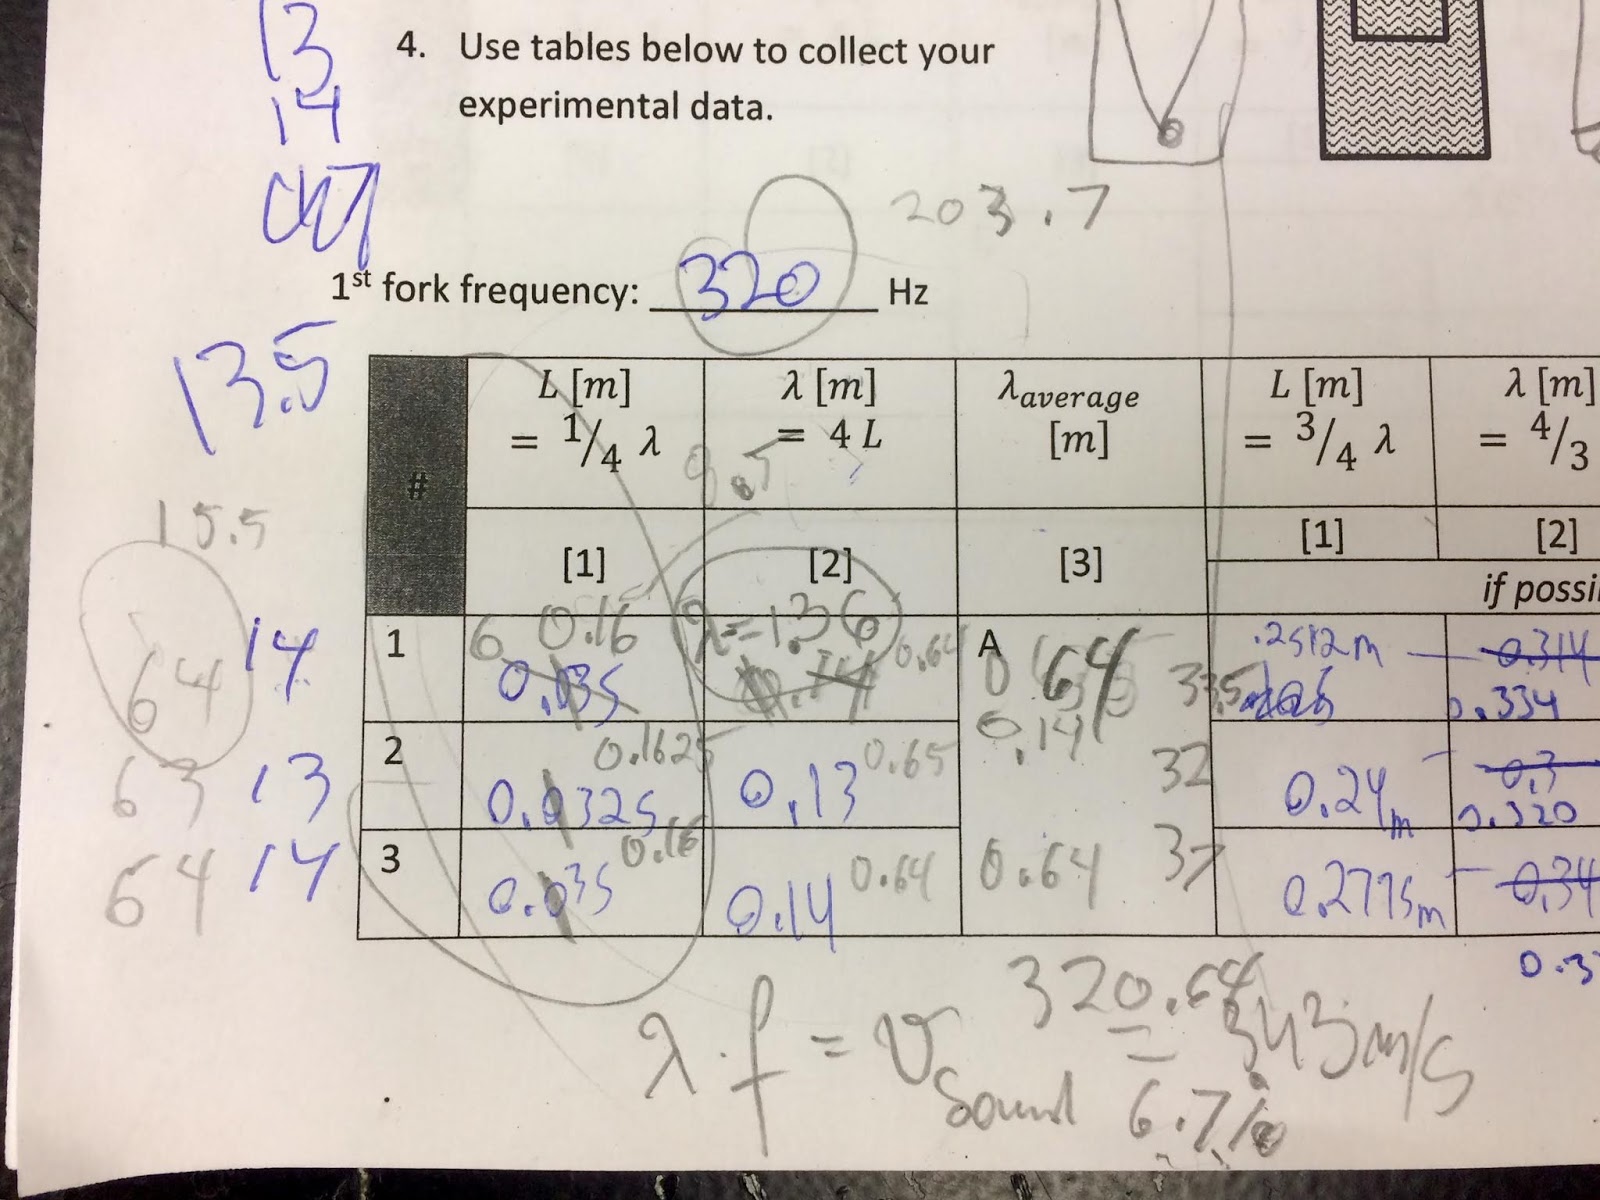 13
14
4. Use tables below to collect your
experimental data.
203.7
1st fork frequency: 320 Hz
13.5
#
L [m]
= 1/4 λ
λ [m]
= 4 L
λaverage
[m]
L [m]
= 3/4 λ
λ [m]
= 4/3
9.5
15.5
[1] [2] [3] [1] [2]
if possi
64 14
1
6 0.16
0.035
λ=1.36
0.14 0.64
A
0.64
0.14
33.5
.2512m
0.314
0.334
63 13
2
0.1625
0.0325
0.13 0.65
32
0.24m
0.3
0.320
64 14
3
0.16
0.035
0.14 0.64
0.64
37
0.2775m
0.34
0.3
320.64
λ · f = v sound = 343m/s
6.7%